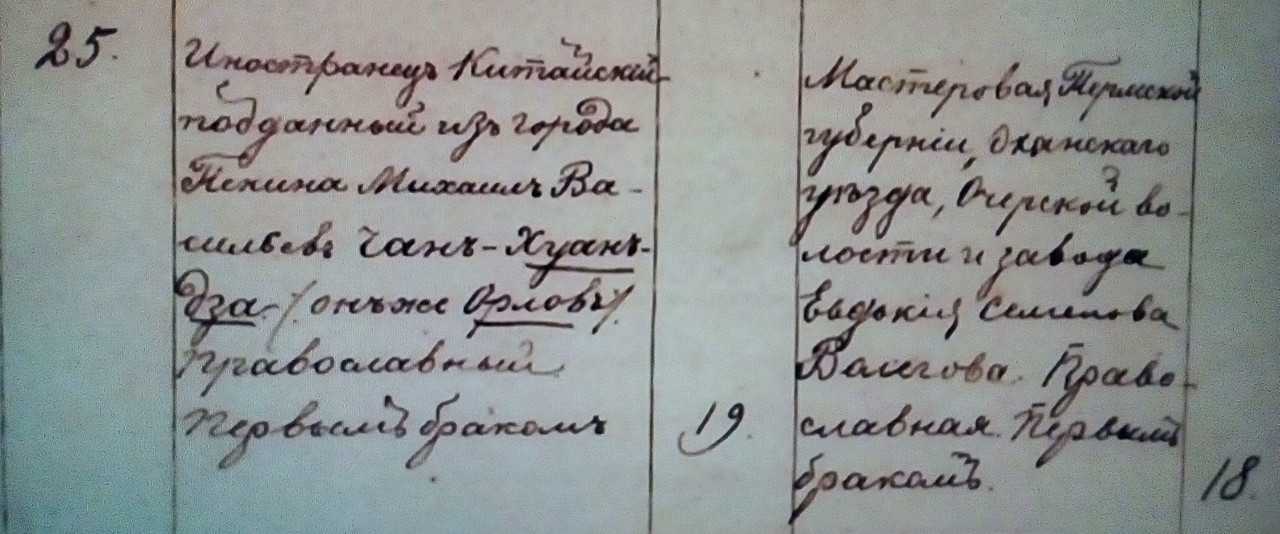 25.
Иностранецъ Китайскій
подданный изъ города
Пекина Михаилъ Ва-
сильевъ Чанъ-Хуанъ-
дза. /онъ же Орловъ/.
Православный
Первымъ бракомъ
19.
Мастеровая Пермской
губерніи, Оханскаго
уѣзда, Очерской во-
лости и завода
Евдокія Семенова
Право-
славная. Первымъ
бракомъ.
18.